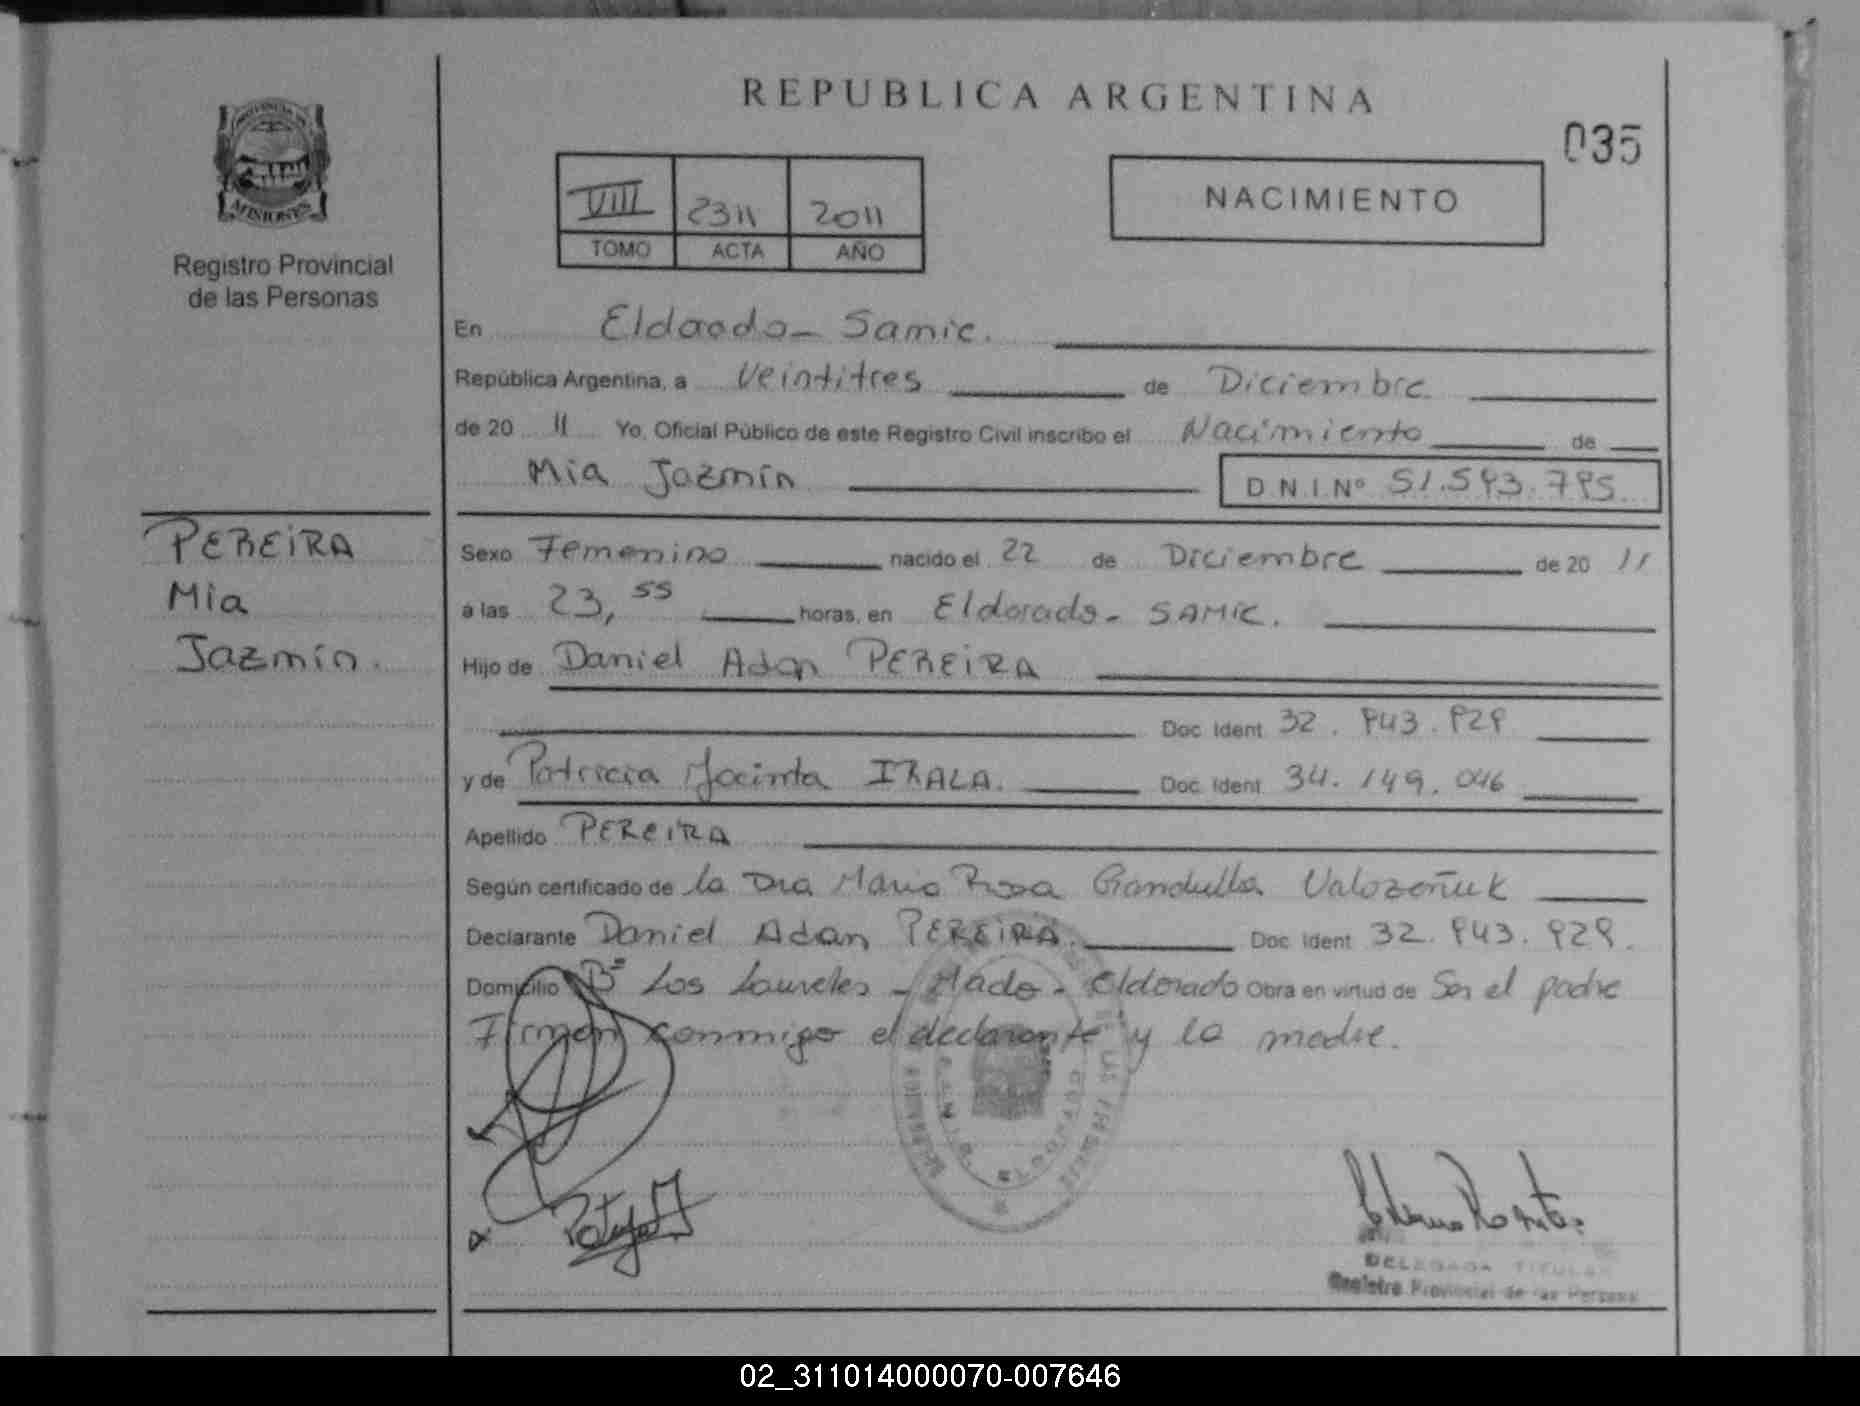 REPUBLICA ARGENTINA
035
PROVINCIA DE
MISIONES
Registro Provincial
de las Personas
VIII 2311 2011
TOMO ACTA AÑO
NACIMIENTO
En Eldorado - Samic.
República Argentina, a Veintitres de Diciembre
de 20 11 Yo, Oficial Público de este Registro Civil inscribo el Nacimiento de
Mia Jazmín D.N.I.Nº
PEREIRA
Mia
Jazmín.
Sexo Femenino nacido el 22 de Diciembre de 20 11
a las 23,55 horas, en Eldorado - SAMIC.
Hijo de Daniel Adan PEREIRA
Doc. Ident. 32.943.929
y de Patricia Jacinta IRALA. Doc. Ident. 34.149.046
Apellido PEREIRA
Según certificado de la Dra Maria Rosa Gandulla
Declarante Daniel Adan PEREIRA. Doc. Ident. 32.943.929.
Domicilio Bº Los Laureles - Mado - Eldorado Obra en virtud de Ser el padre
Firman conmigo el declarante y la madre.
DELEGADA TITULAR
Registro Provincial de las Personas
02_311014000070-007646